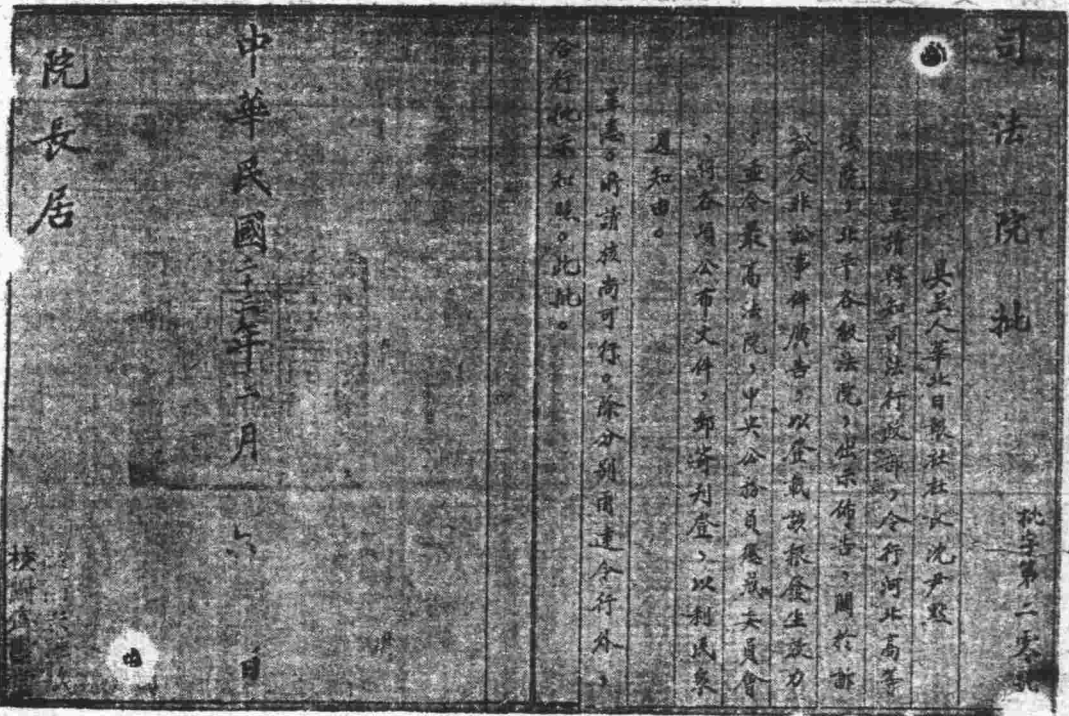 司法院批
批字第二零
具呈人華北日報社社長沈尹默
呈請轉知司法行政部，令行河北高等
法院，北平各級法院，出示佈告，關於訴
訟及非訟事件廣告，以登載該報發生效力
，並令最高法院，中央公務員懲戒委員會
，將各項公布文件，郵寄刊登，以利民衆
週知由。
呈悉。所請核尚可行。除分別函達令行外，
合行批示知照。此批。
中華民國二十二年二月六日
院長居